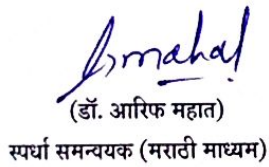 (डॉ. आरिफ महात)
स्पर्धा समन्वयक (मराठी माध्यम)